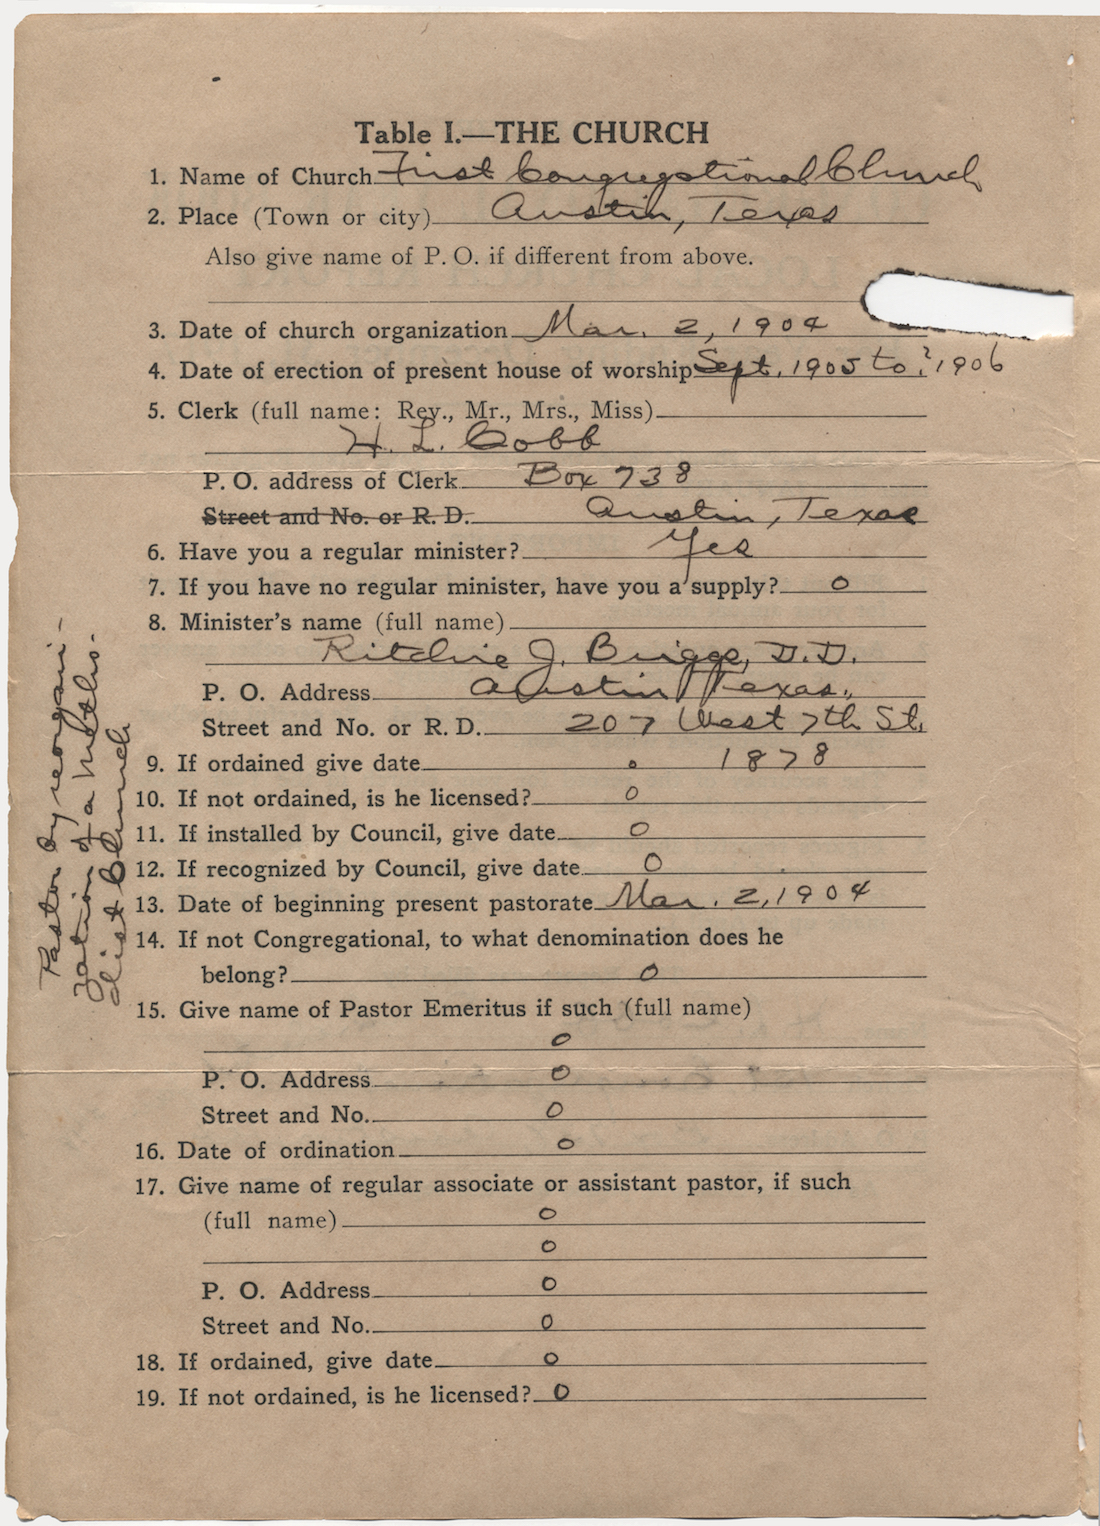 Table I.—THE CHURCH
1. Name of Church First Congregational Church
2. Place (Town or city) Austin, Texas
Also give name of P. O. if different from above.
3. Date of church organization Mar. 2, 1904
4. Date of erection of present house of worship Sept. 1905 to ? 1906
5. Clerk (full name: Rev., Mr., Mrs., Miss)
H. L. Cobb
P. O. address of Clerk Box 738
Street and No. or R. D. Austin, Texas
6. Have you a regular minister? Yes
7. If you have no regular minister, have you a supply? 0
8. Minister's name (full name)
Ritchie J. Briggs, D.D.
P. O. Address Austin Texas.
Street and No. or R. D. 207 West 7th St.
9. If ordained give date 0 1878
10. If not ordained, is he licensed? 0
11. If installed by Council, give date 0
12. If recognized by Council, give date 0
13. Date of beginning present pastorate Mar. 2, 1904
14. If not Congregational, to what denomination does he
belong? 0
15. Give name of Pastor Emeritus if such (full name)
0
P. O. Address 0
Street and No. 0
16. Date of ordination 0
17. Give name of regular associate or assistant pastor, if such
(full name) 0
0
P. O. Address 0
Street and No. 0
18. If ordained, give date 0
19. If not ordained, is he licensed? 0
Pastor by reorgani-
zation of a Metho-
dist Church